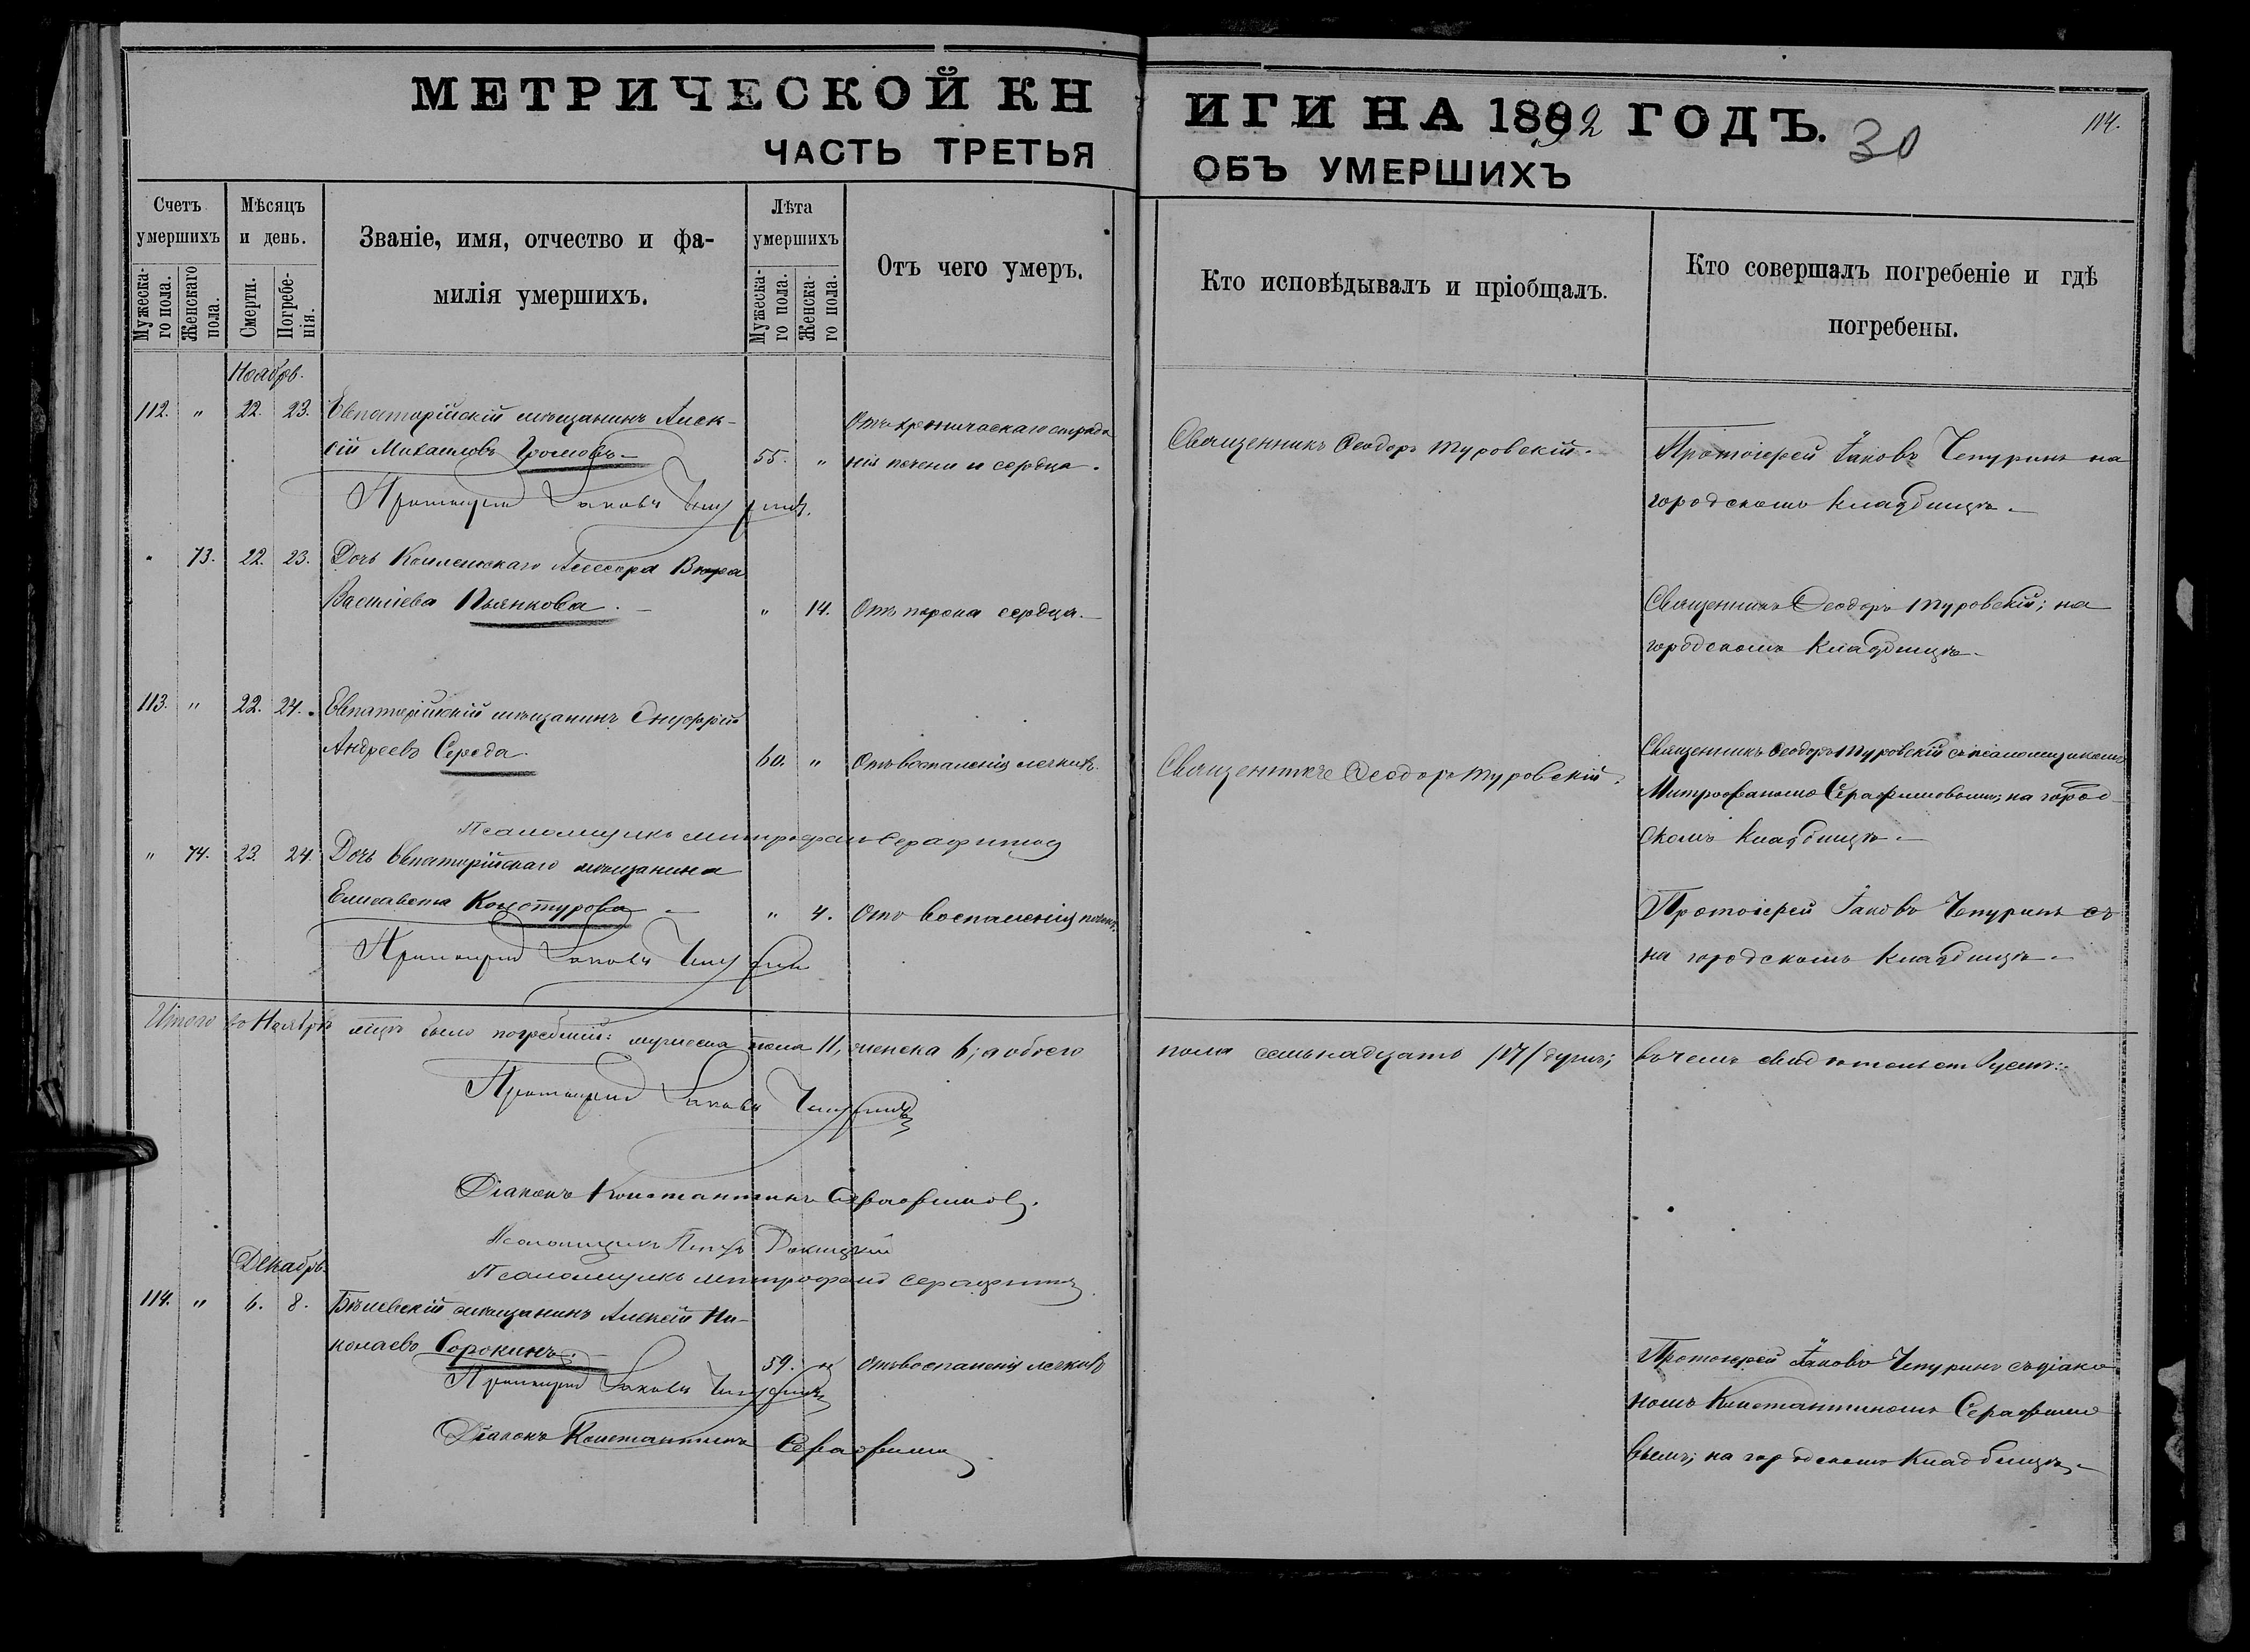 МЕТРИЧЕСКОЙ КНИГИ НА 1892 ГОДЪ.
30
114.
ЧАСТЬ ТРЕТЬЯ ОБЪ УМЕРШИХЪ
Счетъ умершихъ
Мужеска-го пола.
Женскаго пола.
Мѣсяцъ и день.
Смерти.
Погребе-нія.
Званіе, имя, отчество и фа-
милія умершихъ.
Лѣта умершихъ
Мужеска-го пола.
Женска-го пола.
Отъ чего умеръ.
Кто исповѣдывалъ и пріобщалъ.
Кто совершалъ погребеніе и гдѣ
погребены.
Ноябрь.
112. " 22. 23. Евпаторійскій мѣщанинъ Алек-
сій Михаиловъ Громовъ
55. "
Отъ хроническаго страда
нія печени и сердца.
Священникъ Ѳеодоръ Туровскій.
Протоіерей Іаковъ Чепуринъ на
городскомъ кладбищѣ.
Протоіерей Іаковъ Чепуринъ.
" 73. 22. 23. Дочь Коллежскаго Ассесора Вѣра
Васильева Пьянкова.
" 14. Отъ порока сердца.
Священникъ Ѳеодоръ Туровскій; на
городскомъ кладбищѣ.
113. " 22. 24. Евпаторійскій мѣщанинъ Онуфрій
Андреевъ Середа
60. " Отъ воспаленія легкихъ.
Священникъ Ѳеодоръ Туровскій.
Священникъ Ѳеодоръ Туровскій съ псаломщикомъ
Митрофаномъ Серафимовымъ; на город-
скомъ кладбищѣ.
Псаломщикъ Митрофанъ Серафимовъ
" 74. 23. 24. Дочь Евпаторійскаго мѣщанина
Елисавета Конотурова
" 4. Отъ воспаленія
Протоіерей Іаковъ Чепуринъ съ
на городскомъ кладбищѣ.
Протоіерей Іаковъ Чепуринъ
Итого въ Ноябрѣ мцѣ было погребеній: мужеска пола 11, женска 6; а обоего
пола семьнадцать /17/ душъ; въ чемъ свидѣтельствуемъ:
Протоіерей Іаковъ Чепуринъ
Діаконъ Константинъ Серафимовъ.
Псаломщикъ Петръ
Псаломщикъ Митрофанъ Серафимовъ
Декабрь.
114. " 6. 8. Бѣлевскій мѣщанинъ Алексѣй Ни-
колаевъ Сорокинъ.
59. " Отъ воспаленія легкихъ
Протоіерей Іаковъ Чепуринъ съ діако
номъ Константиномъ Серафимо
вымъ; на городскомъ кладбищѣ.
Протоіерей Іаковъ Чепуринъ
Діаконъ Константинъ Серафимовъ